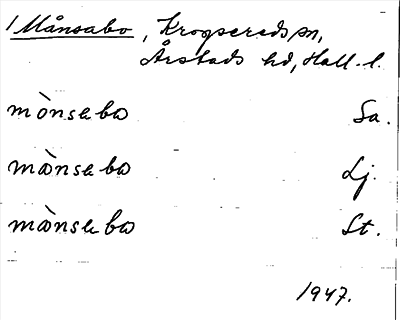 1 Månsabo, Krogsereds sn,
Årstads hd, Hall. l.
mònsabo Sa.
mànsabo Lj.
mànsabo St.
1947.